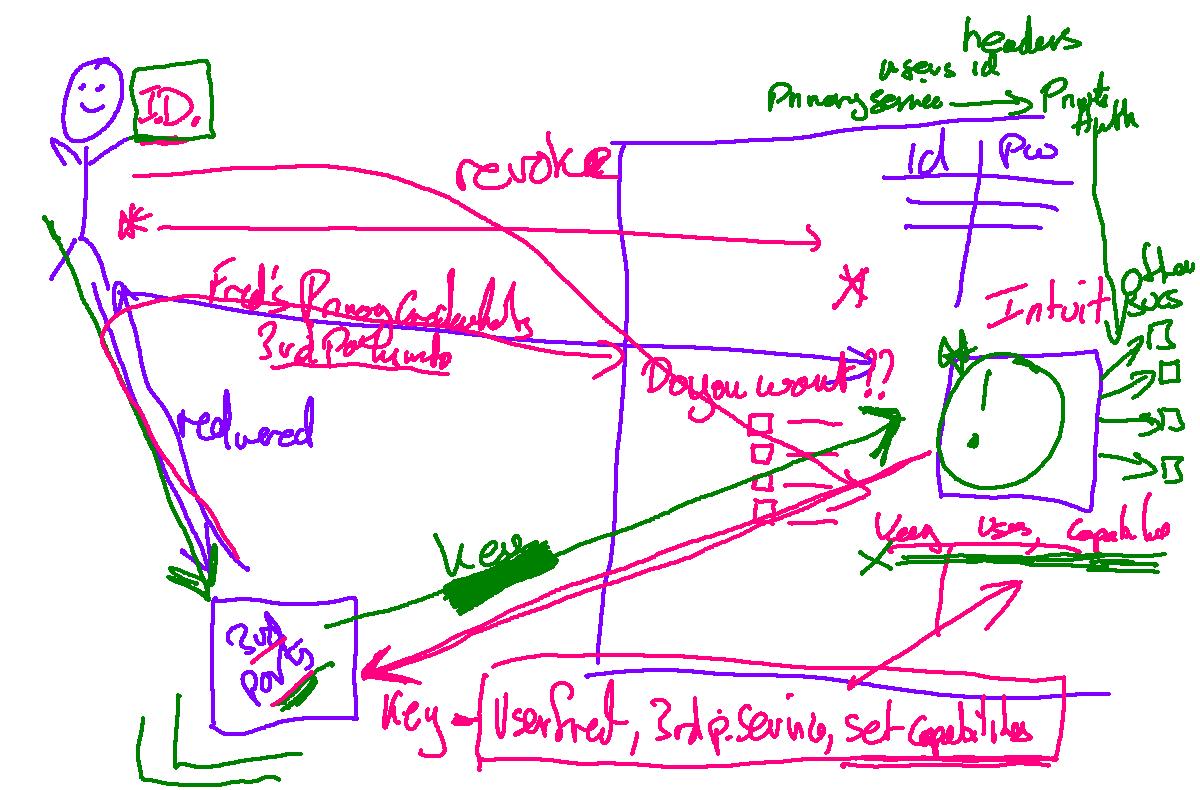 headers
users id
Primary service
Private
Auth
I.D.
id
pw
revoke
Fred's Primary Credentials
3rd Party info
Intuit
other
svcs
Do you want??
redirected
Key
Key, User, Capabilities
3rd
party
Key = User Fred, 3rd p. Service, set capabilities